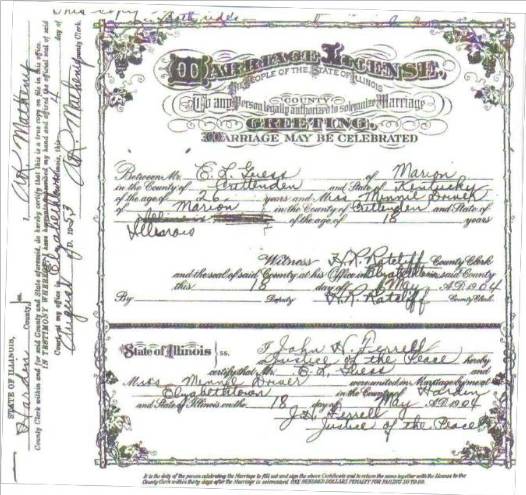 Both sides
MARRIAGE LICENSE.
THE PEOPLE OF THE STATE OF ILLINOIS
COUNTY
To any Person legally authorized to solemnize Marriage
GREETING.
MARRIAGE MAY BE CELEBRATED
Between Mr. E. L. Guess of Marion
in the County of Crittenden and State of Kentucky
of the age of 26 years and Miss Minnie Driver
of Marion in the County of Crittenden and State of
Illinois of the age of 18 years
Witness H. R. Ratcliff County Clerk
and the seal of said County at his Office in Elizabethtown said County
this 18 day of May A.D. 1904
By Deputy H. R. Ratcliff County Clerk.
State of Illinois } ss. I John H Ferrell
Justice of the Peace hereby
certify that Mr. E L Guess and
Miss Minnie Driver were united in Marriage by me at
Elizabethtown in the County of Hardin
and State of Illinois on the 18 day of May A.D. 1904
J H Ferrell
Justice of the Peace
It is the duty of the person celebrating the Marriage to fill out and sign the above Certificate and to return the same together with the License to the
County Clerk within thirty days after the Marriage is solemnized. ONE HUNDRED DOLLARS PENALTY FOR FAILING SO TO DO.
STATE OF ILLINOIS,
Hardin County. I, A R Matheny
County Clerk within and for said County and State aforesaid, do hereby certify that this is a true copy on file in this office.
IN TESTIMONY WHEREOF I have hereunto set my hand and affixed the official seal of said
Court, at my office in Elizabethtown, this 4 day of
August A. D. 1953 A R Matheny County Clerk.